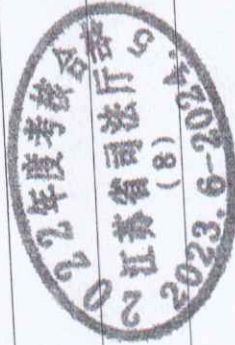 2022年度考核合格
江苏省司法厅
(8)
2023.6-2024.5